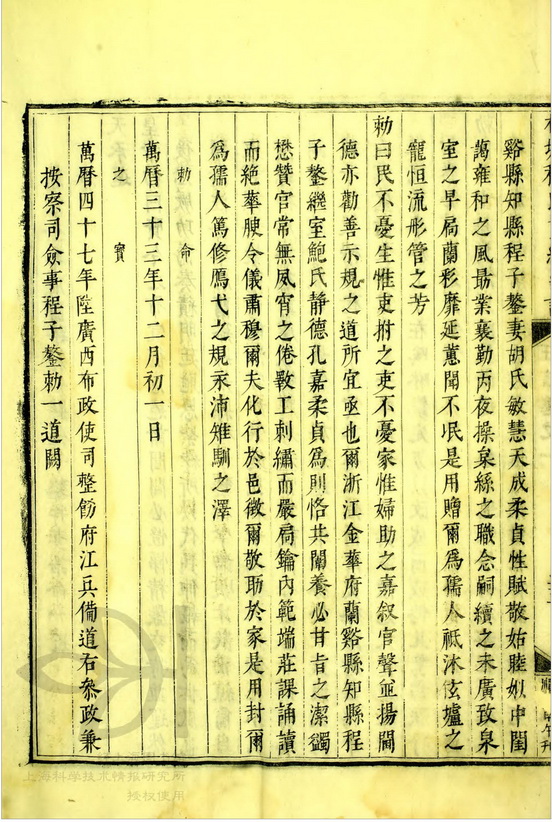 谿縣知縣程子鏊妻胡氏敏慧天成柔貞性賦敬姑睦姒中閨
藹雍和之風勗業襄勤丙夜操枲絲之職念嗣續之未廣致泉
室之早扃蘭彩靡延蕙聞不泯是用贈爾為孺人祗沐玄壚之
寵恒流彤管之芳
勅曰民不憂生惟吏拊之吏不憂家惟婦助之嘉叙官聲並揚閫
德亦勸善示規之道所宜亟也爾浙江金華府蘭谿縣知縣程
子鏊繼室鮑氏靜德孔嘉柔貞為則恪共闌養必甘旨之潔蠲
懋贊官常無夙宵之倦斁工刺繡而嚴扃鑰內範端莊課誦讀
而絶華腴令儀肅穆爾夫化行於邑徵爾敬助於家是用封爾
為孺人篤修鴈弋之規永沛雉馴之澤
勅命
萬曆三十三年十二月初一日
之寳
萬曆四十七年陞廣西布政使司整飭府江兵備道右叅政兼
按察司僉事程子鏊勅一道闕
上海科学技术情报研究所
授权使用